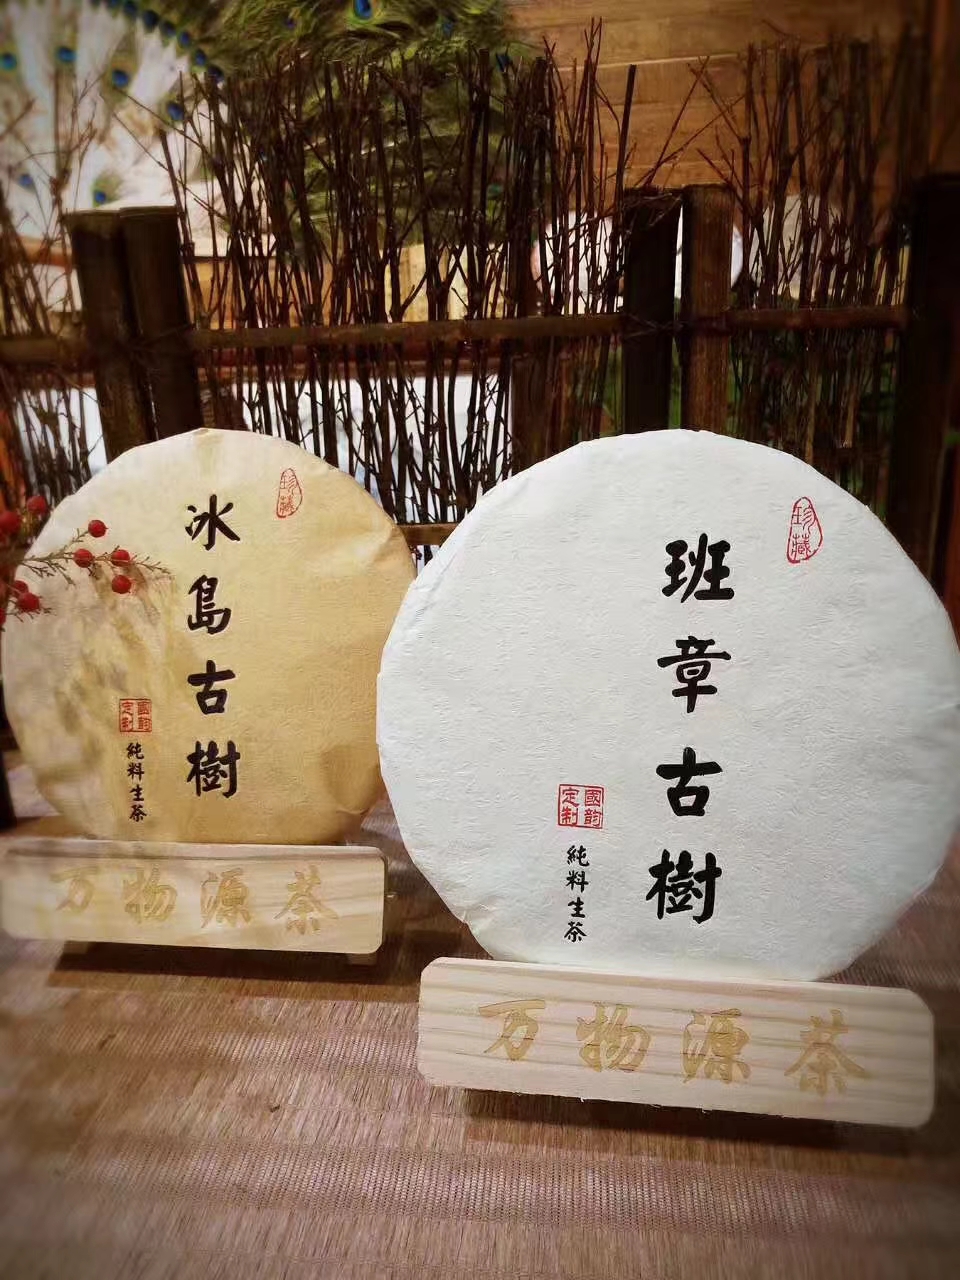 冰島古樹
珍藏
國韵
定制
純料生茶
万物源茶
班章古樹
珍藏
國韵
定制
純料生茶
万物源茶